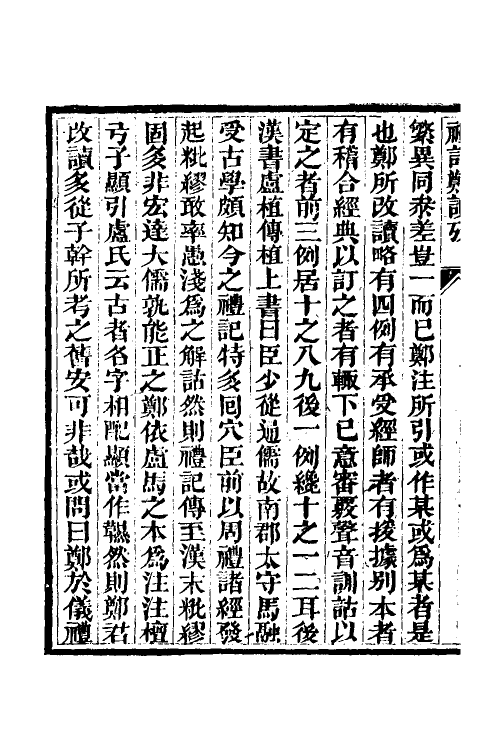 禮記鄭讀攷
繁異同參差豈一而已鄭注所引或作某或爲某者是
也鄭所改讀略有四例有承受經師者有援據別本者
有稽合經典以訂之者有輒下已意審覈聲音訓詁以
定之者前三例居十之八九後一例纔十之一二耳後
漢書盧植傳植上書曰臣少從通儒故南郡太守馬融
受古學頗知今之禮記特多囘穴臣前以周禮諸經發
起粃繆敢率愚淺爲之解詁然則禮記傳至漢末粃繆
固多非宏達大儒孰能正之鄭依盧馬之本爲注注檀
弓子顯引盧氏云古者名字相配顯當作韅然則鄭君
改讀多從子幹所考之舊安可非哉或問曰鄭於儀禮